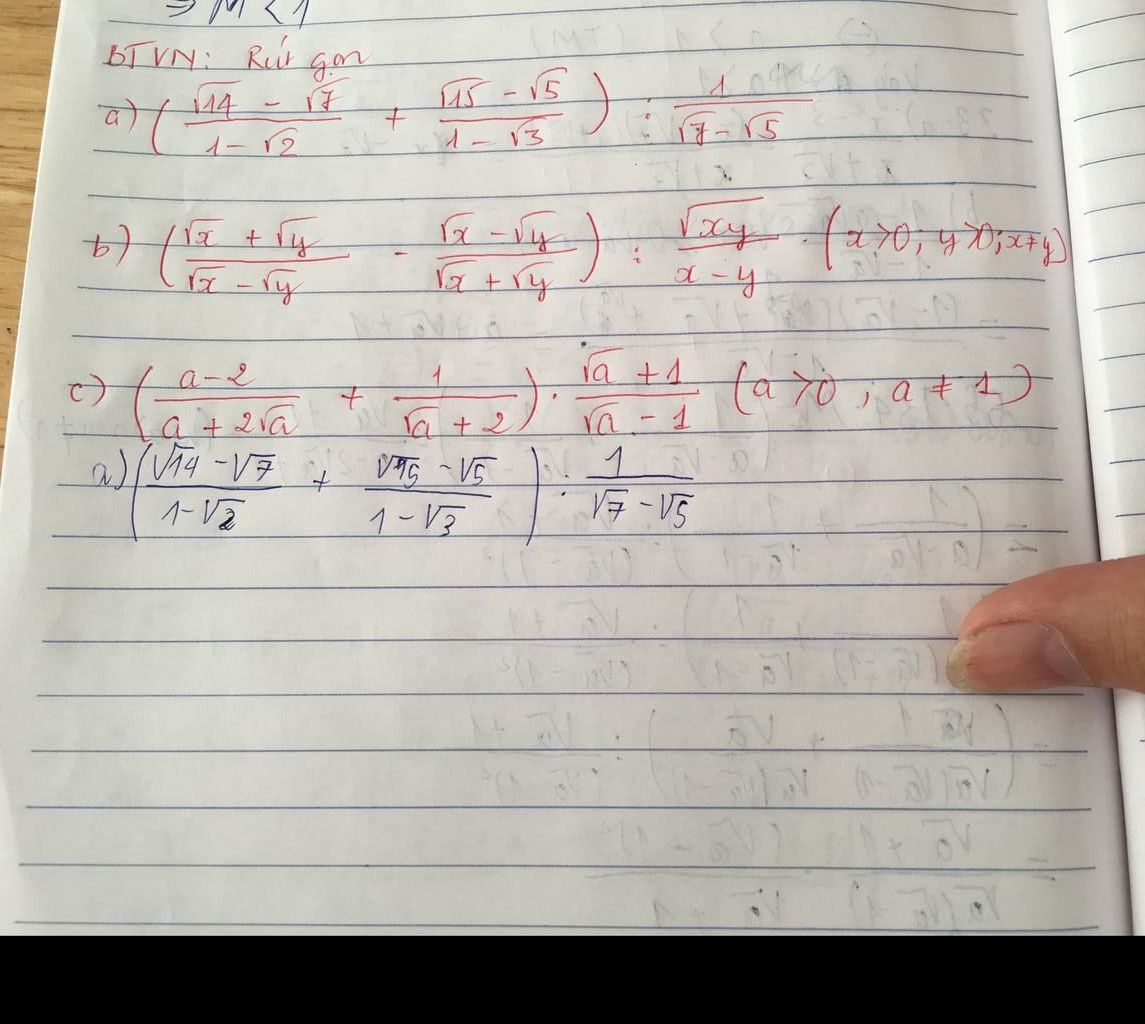 ⇒ M < 1
BTVN: Rút gọn
a) (\frac{√14 - √7}{1 - √2} + \frac{√15 - √5}{1 - √3}) : \frac{1}{√7 - √5}
b) (\frac{√x + √y}{√x - √y} - \frac{√x - √y}{√x + √y}) : \frac{√xy}{x - y} . (x>0; y>0; x≠y)
c) (\frac{a-2}{a + 2√a} + \frac{1}{√a + 2}) . \frac{√a + 1}{√a - 1} (a>0; a ≠ 1)
a) (\frac{√14 - √7}{1 - √2} + \frac{√15 - √5}{1 - √3}) : \frac{1}{√7 - √5}